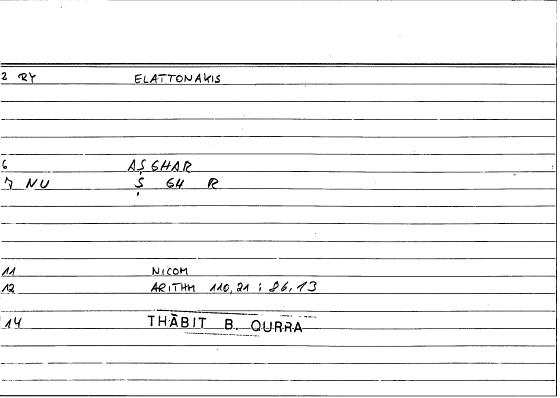 2 RY ELATTONAKIS
6 AṢGHAR
7 NU Ṣ GH R
11 NICOM
12 ARITHM 110,21 : 86,13
14 THĀBIT B. QURRA